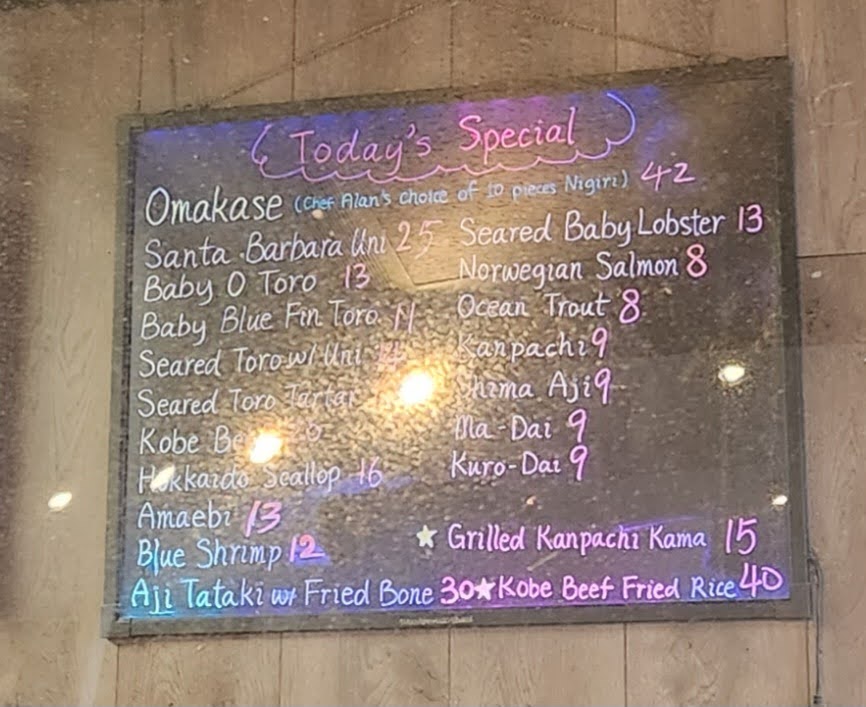 Today's Special
Omakase (Chef Alan's choice of 10 pieces Nigiri) 42
Santa Barbara Uni 25
Baby O Toro 13
Baby Blue Fin Toro 11
Seared Toro w/ Uni
Seared Toro Tartar
Kobe
Hokkaido Scallop 16
Amaebi 13
Blue Shrimp 12
Aji Tataki w/ Fried Bone 30
Seared Baby Lobster 13
Norwegian Salmon 8
Ocean Trout 8
Kanpachi 9
Shima Aji 9
Ma-Dai 9
Kuro-Dai 9
★ Grilled Kanpachi Kama 15
★ Kobe Beef Fried Rice 40